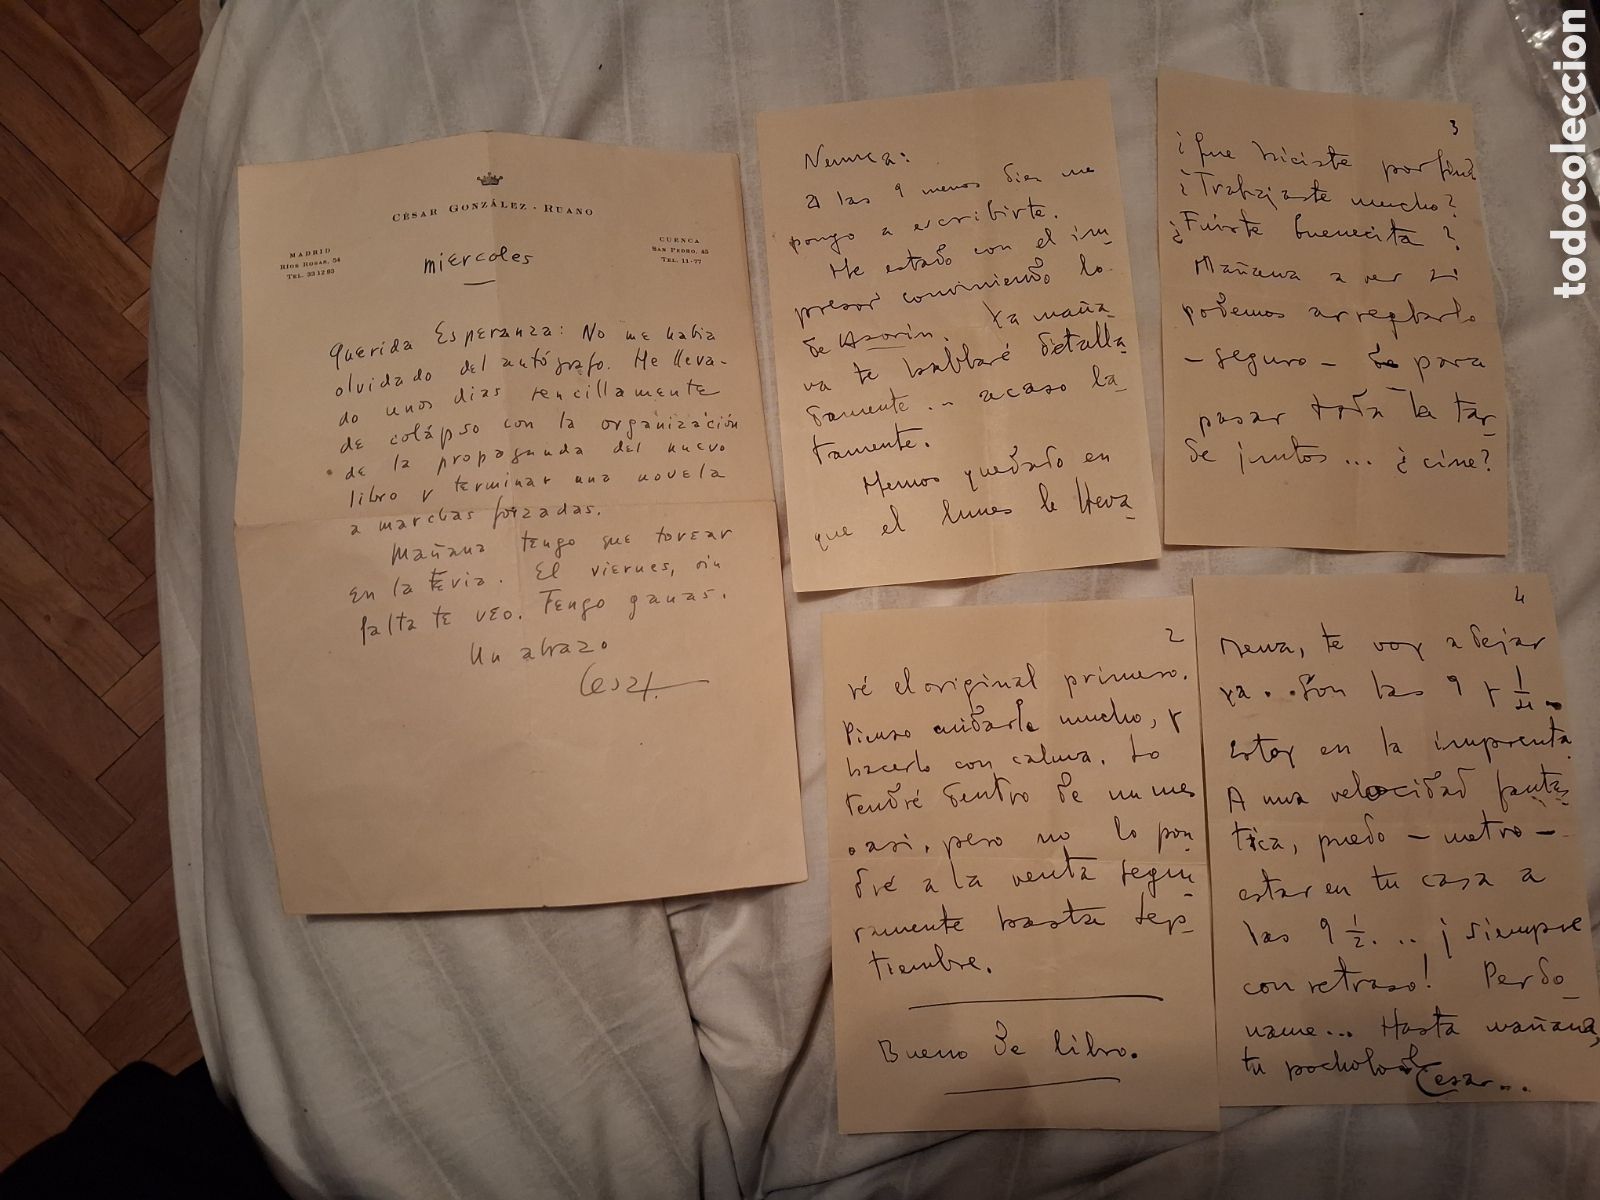 CÉSAR GONZÁLEZ - RUANO
MADRID
RÍOS ROSAS, 54
TEL. 33 12 83
CUENCA
SAN PEDRO, 45
TEL. 11-77
miércoles
Querida Esperanza: No me había
olvidado del autógrafo. He lleva-
do unos dias sencillamente
de colápso con la organización
de la propaganda del nuevo
libro y terminar una novela
a marchas forzadas.
Mañana tengo que torear
en la . El viernes, sin
falta te veo. Tengo ganas.
Un abrazo
César
Nenuca:
A las 9 menos diez me
pongo a escribirte.
He estado con el im
presor conviniendo lo
de Azorín. Ya maña
na te hablaré detalla
damente... acaso la
tamente.
Hemos quedado en
que el lunes le lleva
2
ré el original primero.
Pienso cuidarle mucho, y
hacerlo con calma. Lo
tendré dentro de un mes
casi, pero no lo pon
dré a la venta segu
ramente hasta sep-
tiembre.
Bueno de libro.
3
¿Que hiciste por fin?
¿Trabajaste mucho?
¿Fuiste buenecita?
Mañana a ver si
podemos arreglarlo
- seguro - para
pasar toda la tar-
de juntos... ¿cine?
4
Nena, te voy a dejar
ya.. Son las 9 y 1/4.
Estoy en la imprenta.
A una velocidad fantás-
tica, puedo - metro -
estar en tu casa a
las 9 1/2... ¡siempre
con retraso! Perdó-
name... Hasta mañana,
tu César...
todocoleccion